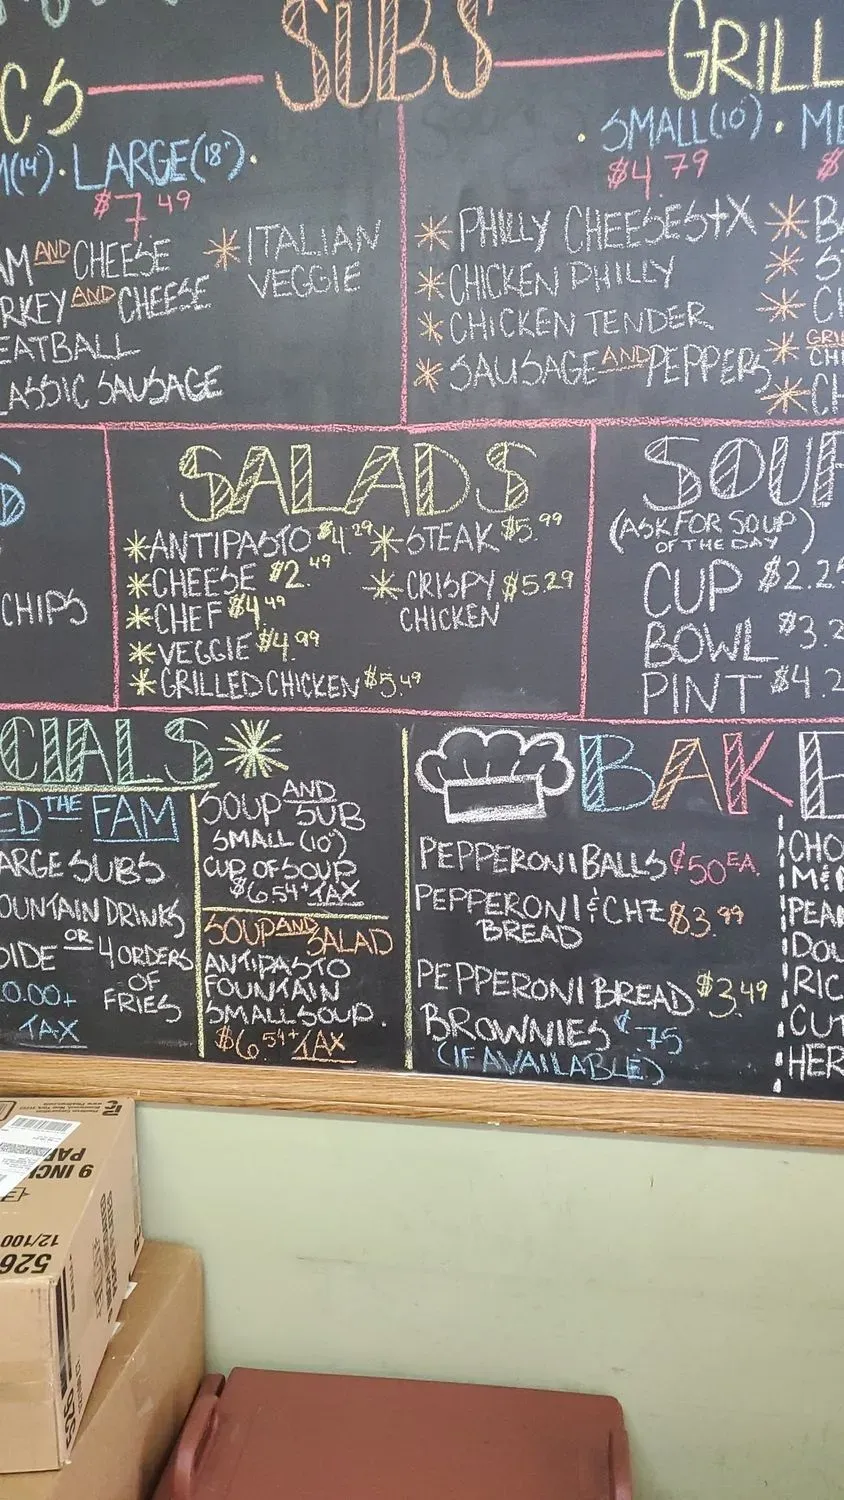 SUBS
GRILL
CS
(14") · LARGE(18") ·
$7.49
· SMALL(10") · ME
$4.79
$
AM AND CHEESE
RKEY AND CHEESE
EATBALL
LASSIC SAUSAGE
* ITALIAN
VEGGIE
* PHILLY CHEESESTX
* CHICKEN PHILLY
* CHICKEN TENDER
* SAUSAGE AND PEPPERS
* BA
* S
* CH
* GRI
CHI
* CH
S
CHIPS
SALADS
* ANTIPASTO $4.29
* CHEESE $2.49
* CHEF $4.49
* VEGGIE $4.99
* GRILLED CHICKEN $5.49
* STEAK $5.99
* CRISPY $5.29
CHICKEN
SOUP
(ASK FOR SOUP
OF THE DAY)
CUP $2.25
BOWL $3.2
PINT $4.2
CIALS *
ED THE FAM
ARGE SUBS
OUNTAIN DRINKS
SIDE OR 4 ORDERS
OF
FRIES
0.00+
TAX
SOUP AND
SUB
SMALL (10")
CUP OF SOUP
$6.54 + TAX
SOUP AND
SALAD
ANTIPASTO
FOUNTAIN
SMALL SOUP.
$6.54 + TAX
BAKE
PEPPERONI BALLS ¢50 EA.
PEPPERONI & CHZ $3.99
BREAD
PEPPERONI BREAD $3.49
BROWNIES ¢.75
(IF AVAILABLE)
CHO
M&M
PEA
DOU
RIC
CUT
HER
9 INC
PA
526
12/100